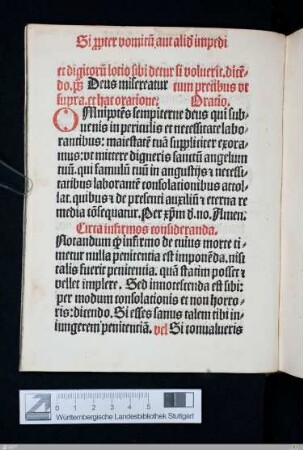 Si ꝓpter vomitũ aut aliđ impedi
et digitorũ lotio sibi detur si voluerit. dicẽ-
do. ps̄ Deus misereatur cum precibus vt
supra. et hac oratione: Oratio.
OMnipotẽs sempiterne deus qui sub-
uenis in periculis et necessitate labo-
rantibus: maiestatẽ tuã suppliciter exora-
mus: vt mittere digneris sanctũ angelum
tuũ. qui famulũ tuũ in angustijs ⁊ necessi-
tatibus laborantẽ consolationibus attol-
lat. quibus ⁊ de presenti auxiliũ ⁊ eterna re
media cõsequatur. Per xp̄m d. no. Amen.
Circa infirmos consideranda.
Notandum ꝙ infirmo de cuius morte ti-
metur nulla penitentia est imponẽda. nisi
talis fuerit penitentia. quã statim posset ⁊
vellet implere. Sed innotescenda est sibi:
per modum consolationis et non horro-
ris: dicendo. Si esses sanus talem tibi in
iungerem penitenciã. vel Si conualueris
0 1 2 3 4 5
Württembergische Landesbibliothek Stuttgart